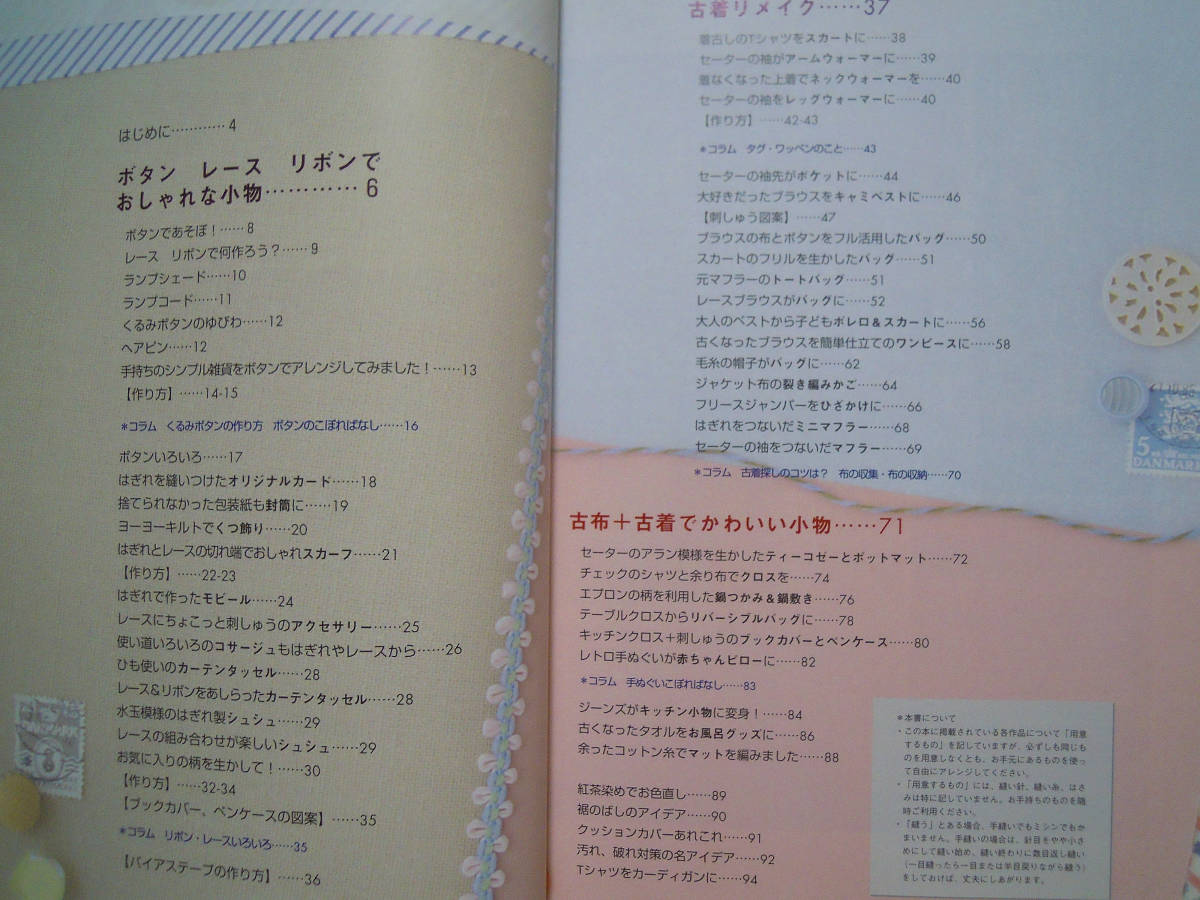 はじめに…………4
ボタン　レース　リボンで
おしゃれな小物…………6
ボタンであそぼ！……8
レース　リボンで何作ろう？……9
ランプシェード……10
ランプコード……11
くるみボタンのゆびわ……12
ヘアピン……12
手持ちのシンプル雑貨をボタンでアレンジしてみました！……13
【作り方】……14-15
＊コラム　くるみボタンの作り方　ボタンのこぼればなし……16
ボタンいろいろ……17
はぎれを縫いつけたオリジナルカード……18
捨てられなかった包装紙も封筒に……19
ヨーヨーキルトでくつ飾り……20
はぎれとレースの切れ端でおしゃれスカーフ……21
【作り方】……22-23
はぎれで作ったモビール……24
レースにちょこっと刺しゅうのアクセサリー……25
使い道いろいろのコサージュもはぎれやレースから……26
ひも使いのカーテンタッセル……28
レース&リボンをあしらったカーテンタッセル……28
水玉模様のはぎれ製シュシュ……29
レースの組み合わせが楽しいシュシュ……29
お気に入りの柄を生かして！……30
【作り方】……32-34
【ブックカバー、ペンケースの図案】……35
＊コラム　リボン・レースいろいろ……35
【バイアステープの作り方】……36
古着リメイク……37
着古しのTシャツをスカートに……38
セーターの袖がアームウォーマーに……39
着なくなった上着でネックウォーマーを……40
セーターの袖をレッグウォーマーに……40
【作り方】……42-43
＊コラム　タグ・ワッペンのこと……43
セーターの袖先がポケットに……44
大好きだったブラウスをキャミベストに……46
【刺しゅう図案】……47
ブラウスの布とボタンをフル活用したバッグ……50
スカートのフリルを生かしたバッグ……51
元マフラーのトートバッグ……51
レースブラウスがバッグに……52
大人のベストから子どもボレロ&スカートに……56
古くなったブラウスを簡単仕立てのワンピースに……58
毛糸の帽子がバッグに……62
ジャケット布の裂き編みかご……64
フリースジャンバーをひざかけに……66
はぎれをつないだミニマフラー……68
セーターの袖をつないだマフラー……69
＊コラム　古着探しのコツは？　布の収集・布の収納……70
古布＋古着でかわいい小物……71
セーターのアラン模様を生かしたティーコゼーとポットマット……72
チェックのシャツと余り布でクロスを……74
エプロンの柄を利用した鍋つかみ&鍋敷き……76
テーブルクロスからリバーシブルバッグに……78
キッチンクロス＋刺しゅうのブックカバーとペンケース……80
レトロ手ぬぐいが赤ちゃんピローに……82
＊コラム　手ぬぐいこぼればなし……83
ジーンズがキッチン小物に変身！……84
古くなったタオルをお風呂グッズに……86
余ったコットン糸でマットを編みました……88
紅茶染めでお色直し……89
裾のばしのアイデア……90
クッションカバーあれこれ……91
汚れ、破れ対策の名アイデア……92
Tシャツをカーディガンに……94
＊本書について
・この本に掲載されている各作品について「用意
するもの」を記していますが、必ずしも同じも
のを用意しなくとも、お手元にあるものを使っ
て自由にアレンジしてください。
・「用意するもの」には、縫い針、縫い糸、はさ
みは特に記していません。お手持ちのものを随
時ご利用ください。
・「縫う」とある場合、手縫いでもミシンでもか
まいません。手縫いの場合は、針目をやや小さ
めにして縫い始め、縫い終わりに数目返し縫い
（一目縫ったら一目または半目戻りながら縫う）
をしておけば、丈夫にしあがります。
5
DANMARK